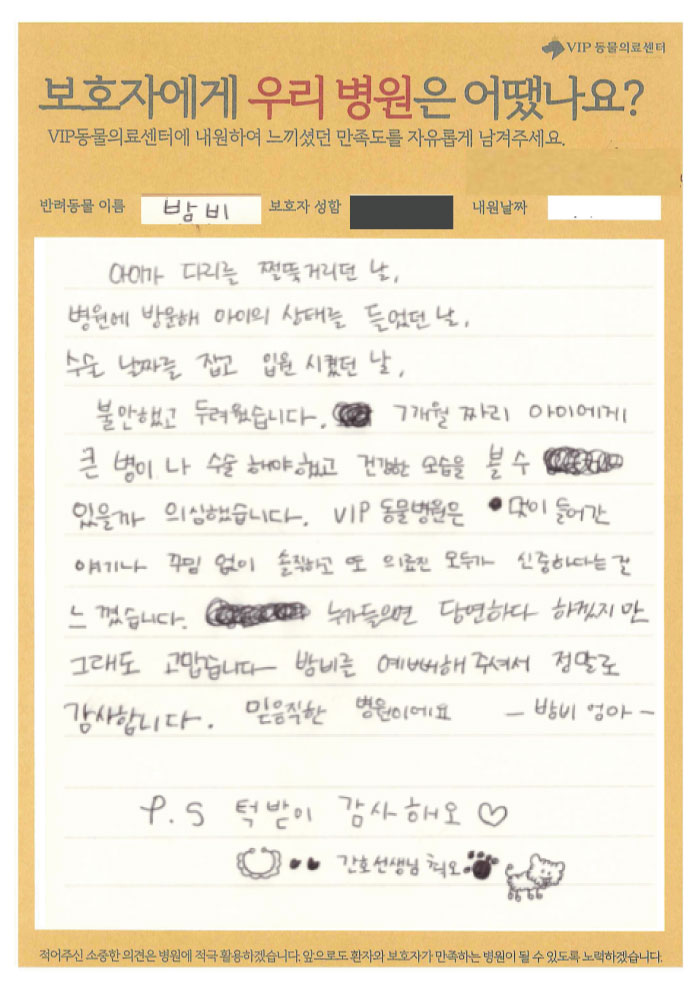 VIP 동물의료센터
보호자에게 우리 병원은 어땠나요?
VIP동물의료센터에 내원하여 느끼셨던 만족도를 자유롭게 남겨주세요.
반려동물 이름 밤비 보호자 성함 내원날짜
아이가 다리를 쩔뚝거리던 날,
병원에 방문해 아이의 상태를 들었던 날,
수술 날짜를 잡고 입원 시켰던 날,
불안했고 두려웠습니다. 7개월 짜리 아이에게
큰 병이 나 수술 해야했고 건강한 모습을 볼 수
있을까 의심했습니다. VIP 동물병원은 멋이 들어간
얘기나 꾸밈 없이 솔직하고 또 의료진 모두가 신중하다는 걸
느꼈습니다. 누가들으면 당연하다 하겠지만
그래도 고맙습니다 밤비를 예뻐해주셔서 정말로
감사합니다. 믿음직한 병원이에요 - 밤비 엄마 -
P.S 턱받이 감사해요 ♡
간호선생님 최고
적어주신 소중한 의견은 병원에 적극 활용하겠습니다. 앞으로도 환자와 보호자가 만족하는 병원이 될 수 있도록 노력하겠습니다.